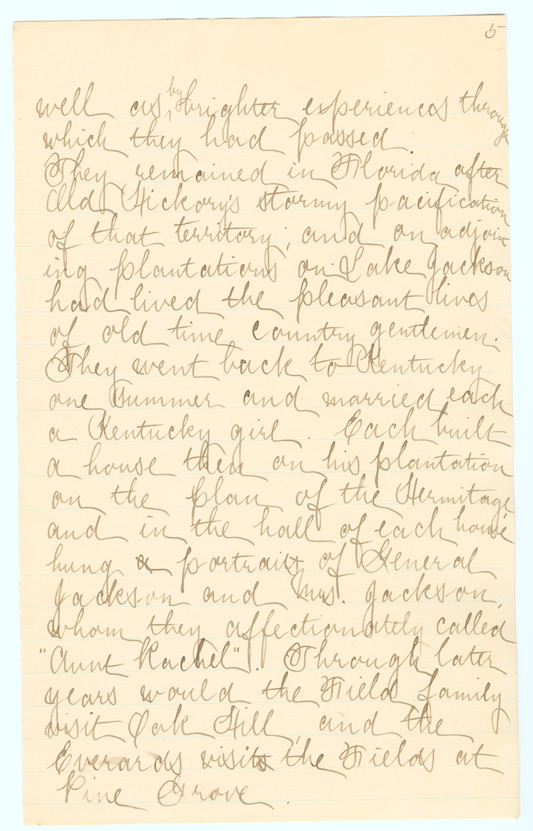 5
well as by brighter experiences through
which they had passed.
They remained in Florida after
Old Hickory's stormy pacification
of that territory; and on adjoin-
ing plantations on Lake Jackson
had lived the pleasant lives
of old time country gentlemen.
They went back to Kentucky
one summer and married each
a Kentucky girl. Each built
a house then on his plantation
on the plan of the Hermitage
and in the hall of each house
hung a portrait of General
Jackson and Mrs. Jackson,
whom they affectionately called
"Aunt Rachel". Through later
years would the Field family
visit Oak Hill, and the
Everards visit the Fields at
Pine Grove.